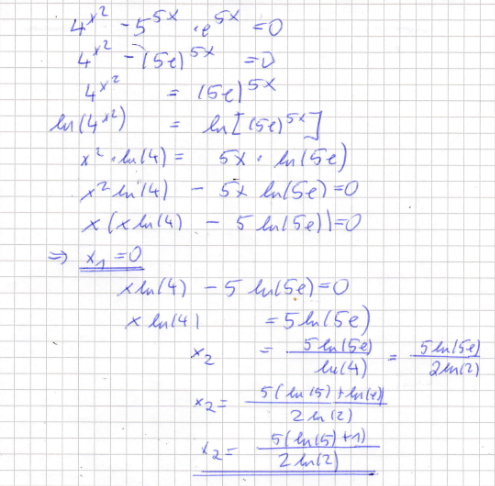 4^{x^2} - 5^{5x} · e^{5x} = 0
4^{x^2} - (5e)^{5x} = 0
4^{x^2} = (5e)^{5x}
ln(4^{x^2}) = ln[(5e)^{5x}]
x^2 · ln(4) = 5x · ln(5e)
x^2 ln(4) - 5x ln(5e) = 0
x(x ln(4) - 5 ln(5e)) = 0
⇒ x_1 = 0
x ln(4) - 5 ln(5e) = 0
x ln(4) = 5 ln(5e)
x_2 = \frac{5 ln(5e)}{ln(4)} = \frac{5 ln(5e)}{2 ln(2)}
x_2 = \frac{5(ln(5) + ln(e))}{2 ln(2)}
x_2 = \frac{5(ln(5) + 1)}{2 ln(2)}